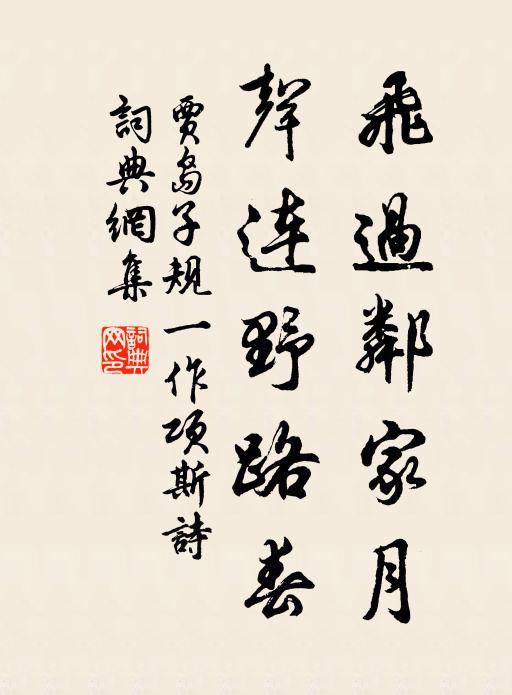 飛過鄰家月
聲連野路春
賈島子規一作項斯詩
詞典網集
詞典
網印